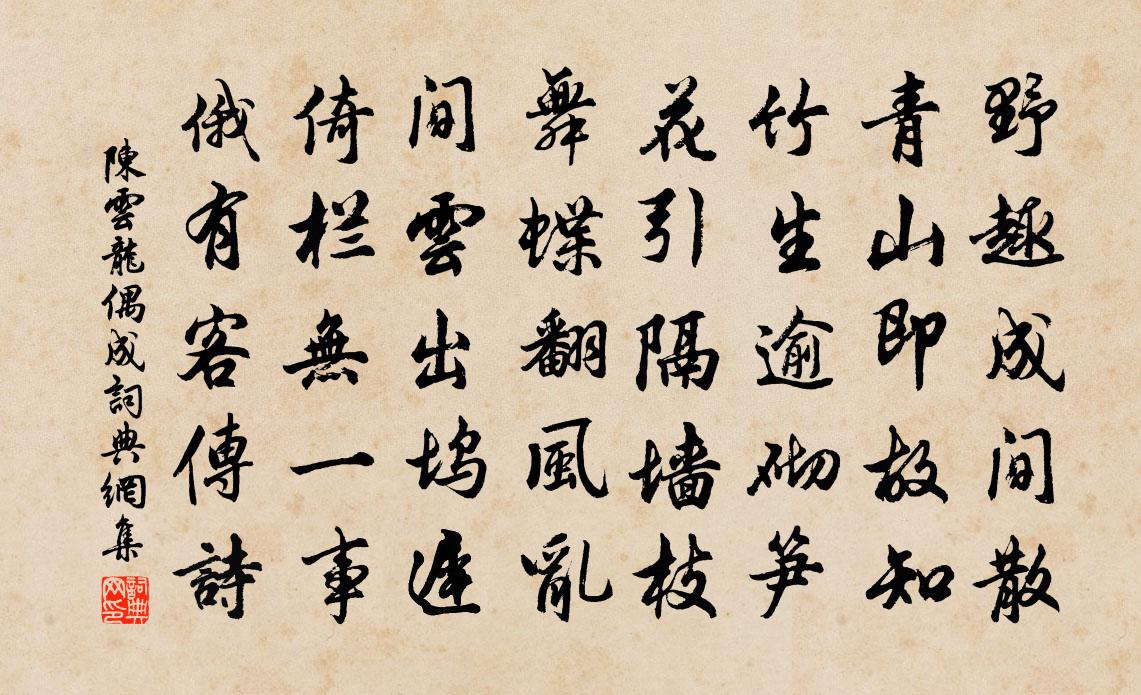 野趣成间散
青山即故知
竹生逾砌笋
花引隔墙枝
舞蝶翻風亂
间雲出坞遲
倚栏無一事
俄有客傳詩
陳雲龍偶成詞典網集
詞典网印